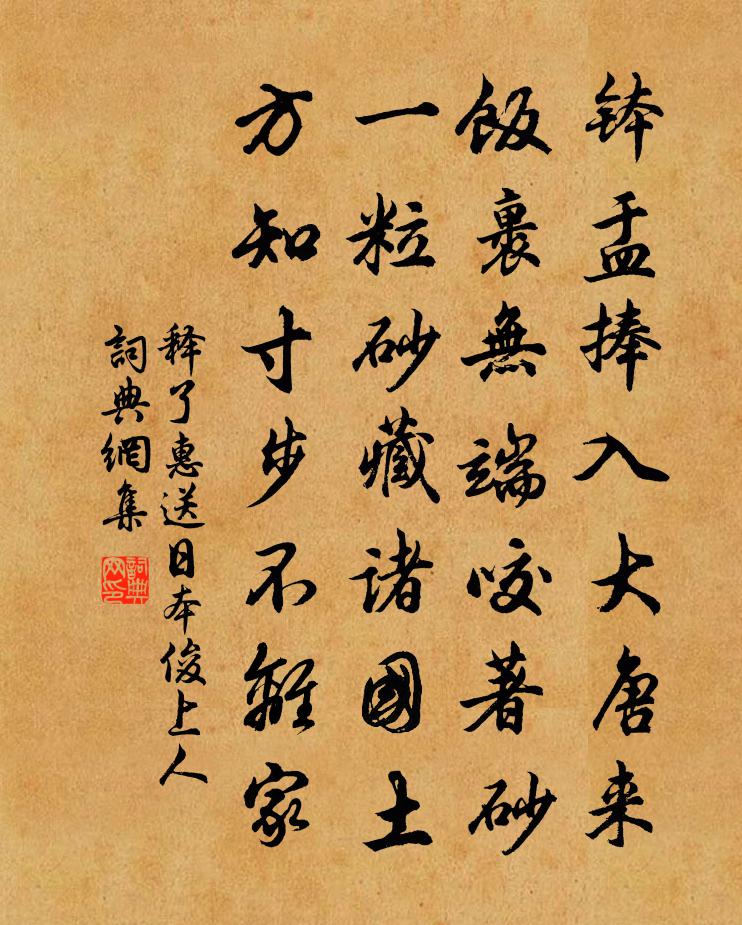 钵盂捧入大唐来
飯裹無端咬著砂
一粒砂藏諸國土
方知寸步不離家
释了惠送日本俊上人
詞典網集
詞典网印